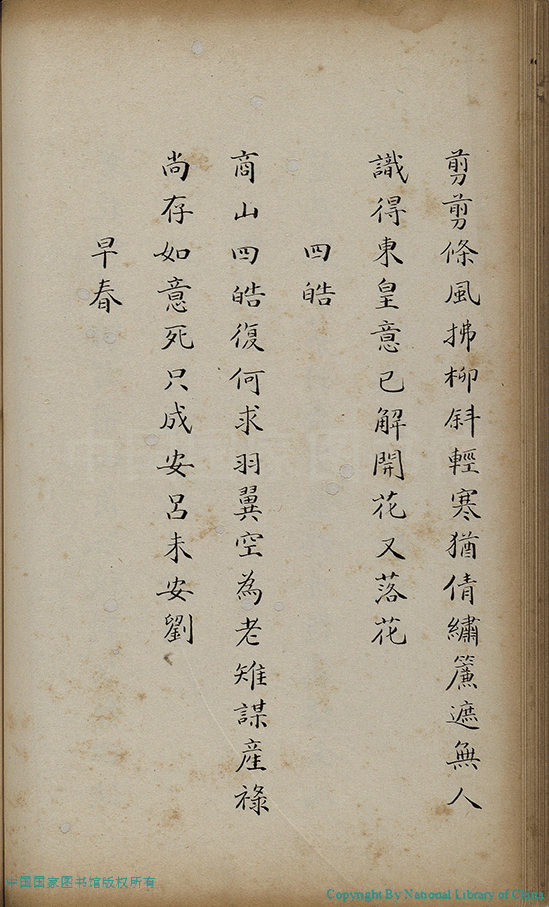 剪剪條風拂柳斜輕寒猶倩繡簾遮無人
識得東皇意已解開花又落花
四皓
商山四皓復何求羽翼空為老雉謀産祿
尚存如意死只成安呂未安劉
早春
中国国家图书馆版权所有
Copyright By National Library of China